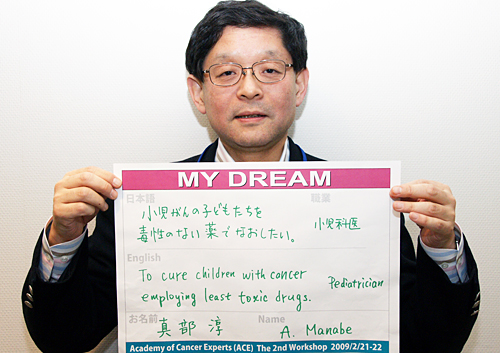 MY DREAM
日本語 職業
小児がんの子どもたちを
毒性のない薬でなおしたい。 小児科医
English
To cure children with cancer
employing least toxic drugs. Pediatrician
お名前 Name
真部 淳 A. Manabe
Academy of Cancer Experts (ACE) The 2nd Workshop 2009/2/21-22